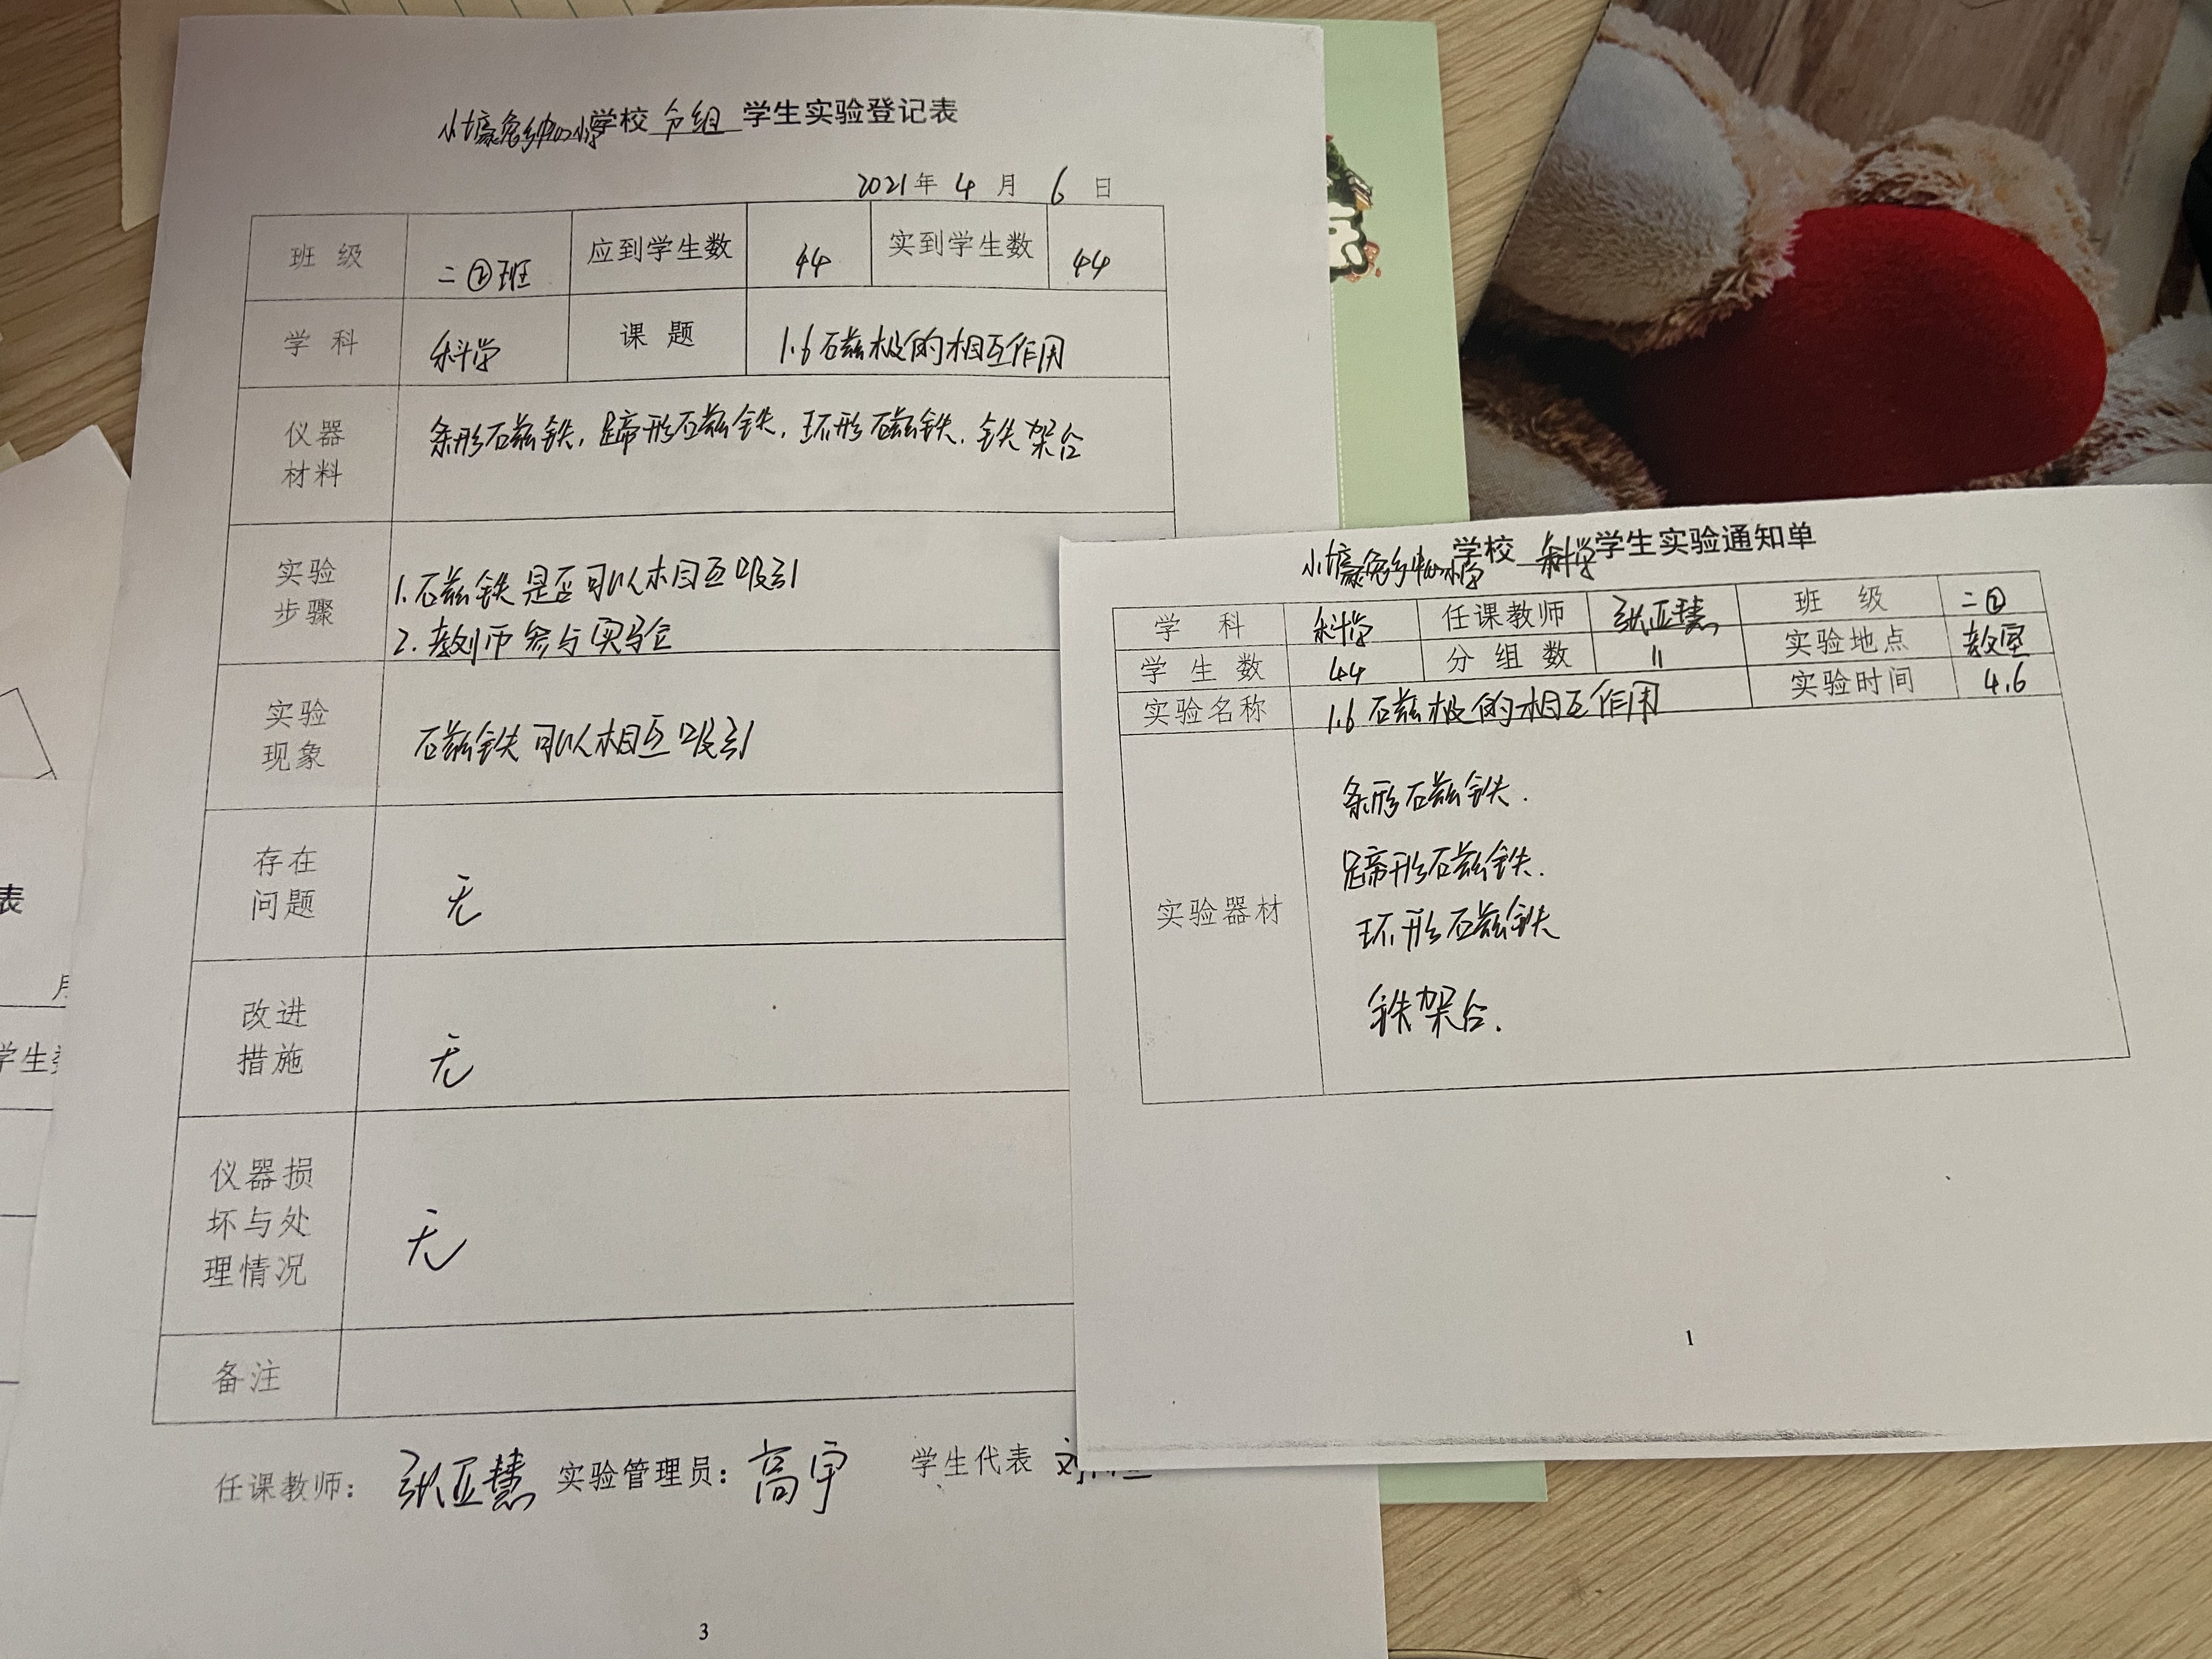 小壕兔乡中心小学学校 分组 学生实验登记表
2021年 4 月 6 日
班 级 二②班 应到学生数 44 实到学生数 44
学 科 科学 课 题 1.6石磁极的相互作用
仪器材料 条形石磁铁, 蹄形石磁铁, 环形石磁铁, 铁架台
实验步骤 1.石磁铁是否可以相互吸引
2.教师参与实验
实验现象 石磁铁可以相互吸引
存在问题 无
改进措施 无
仪器损坏与处理情况 无
备注
任课教师: 张亚慧 实验管理员: 高宇 学生代表
3
小壕兔乡中心小学学校 科学 学生实验通知单
学 科 科学 任课教师 张亚慧 班 级 二②
学 生 数 44 分 组 数 11 实验地点 教室
实验名称 1.6石磁极的相互作用 实验时间 4.6
实验器材 条形石磁铁.
蹄形石磁铁.
环形石磁铁
铁架台.
1
表
月
学生